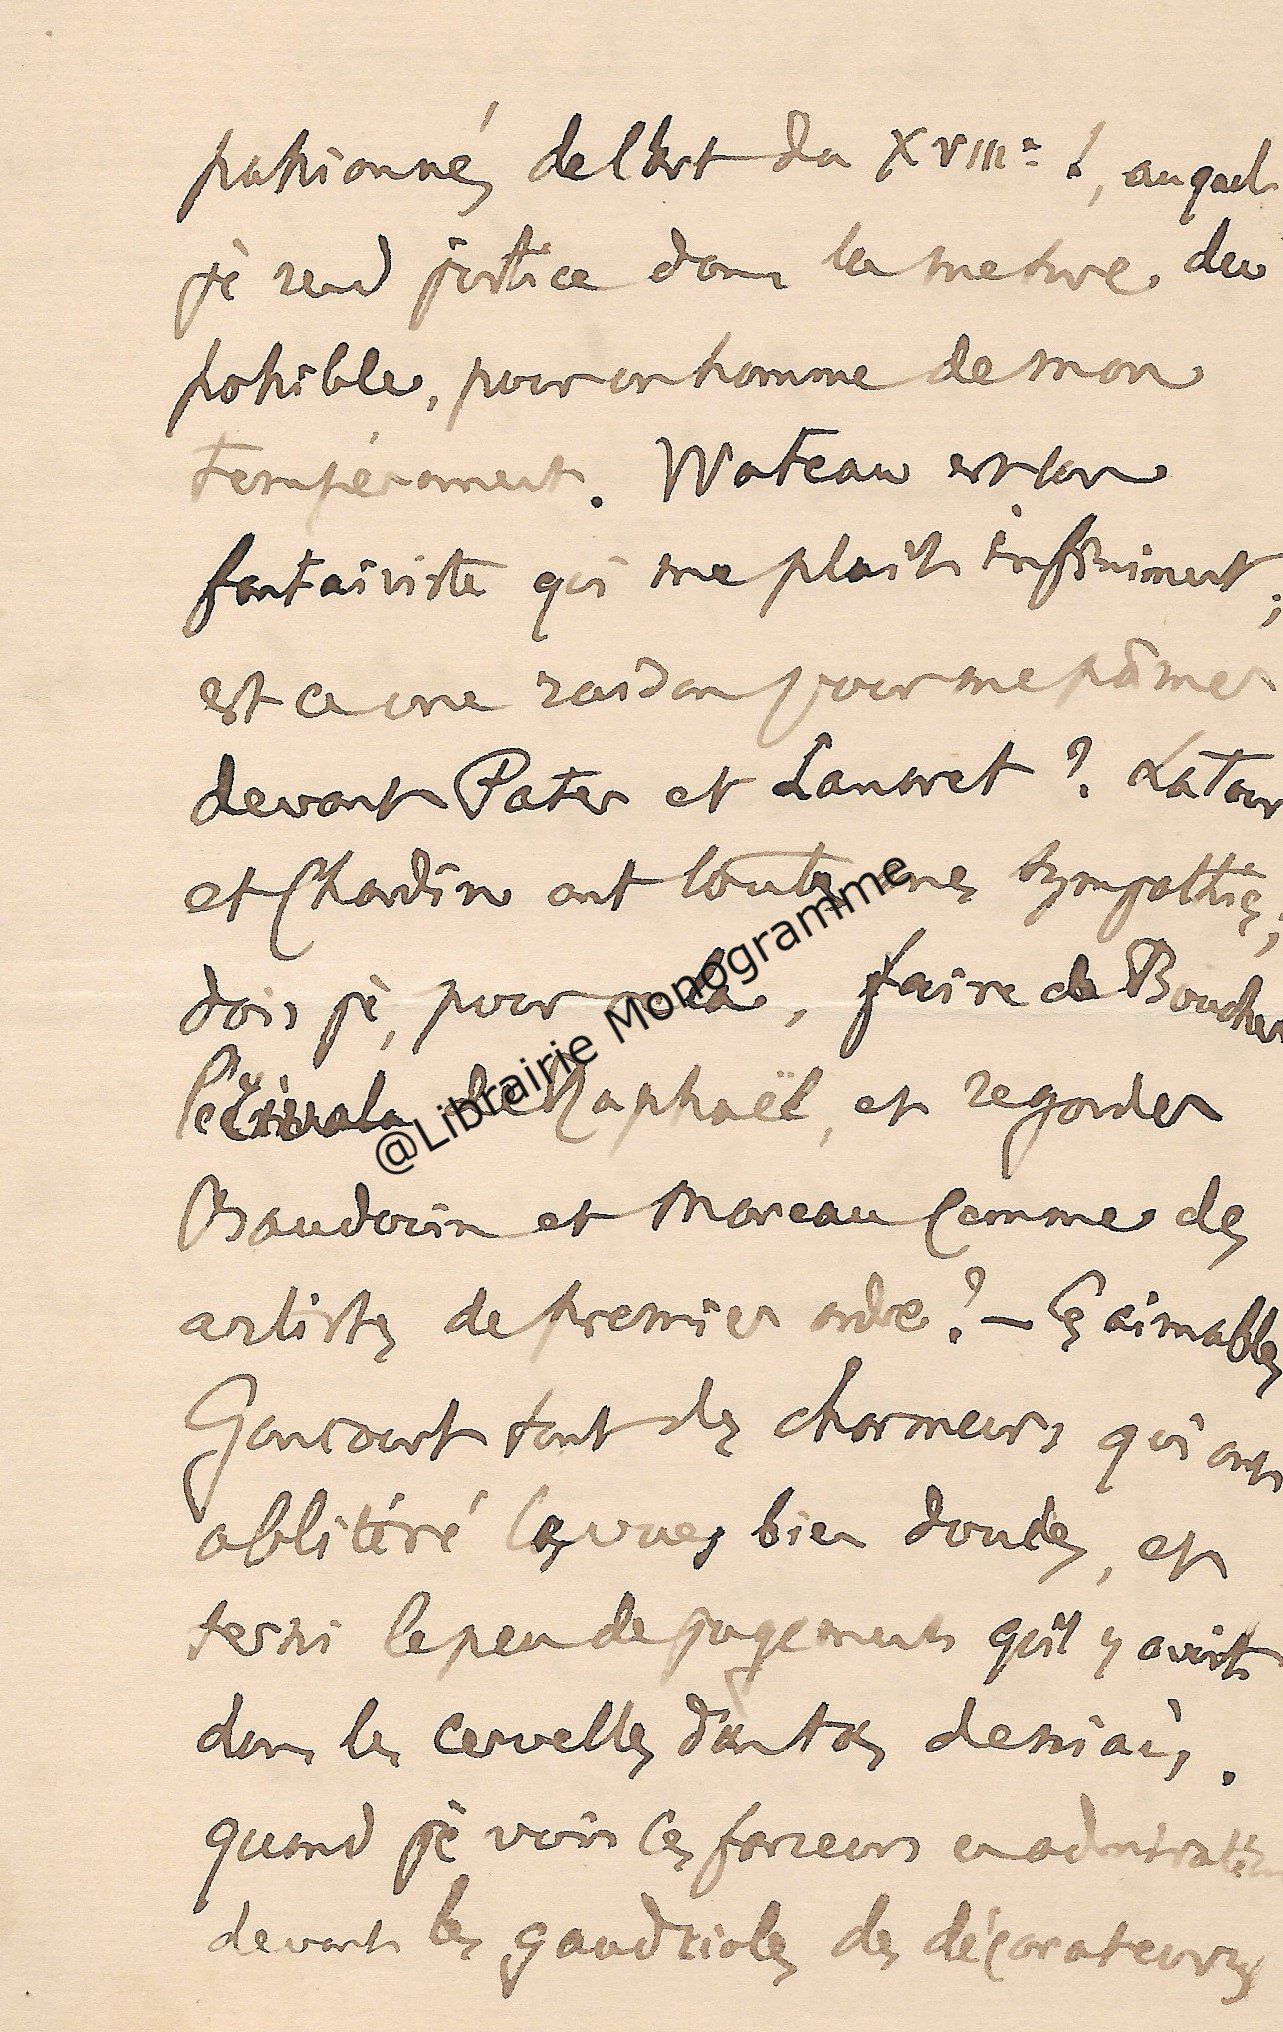 passionnés de l'Art du XVIIIe s, auquel
je rend justice dans la mesure du
possible, pour un homme de mon
tempérament. Wateau est un
fantaisiste qui me plait infiniment;
est ce une raison pour me pâmer
devant Pater et Lancret? LaTour
et Chardin ont toutes mes sympathies;
dois je, pour cela, faire de Boucher
l'égal de Raphaël, et regarder
Baudouin et Moreau comme des
artistes de premier ordre? — Ces aimables
Goncourt sont des charmeurs qui ont
oblitéré les vues bien douces, et
terni le peu de jugement qu'il y avait
dans les cervelles d'un tas de niais.
quand je vois ces farceurs en admiration
devant les gaudrioles des décorateurs
@Librairie Monogramme